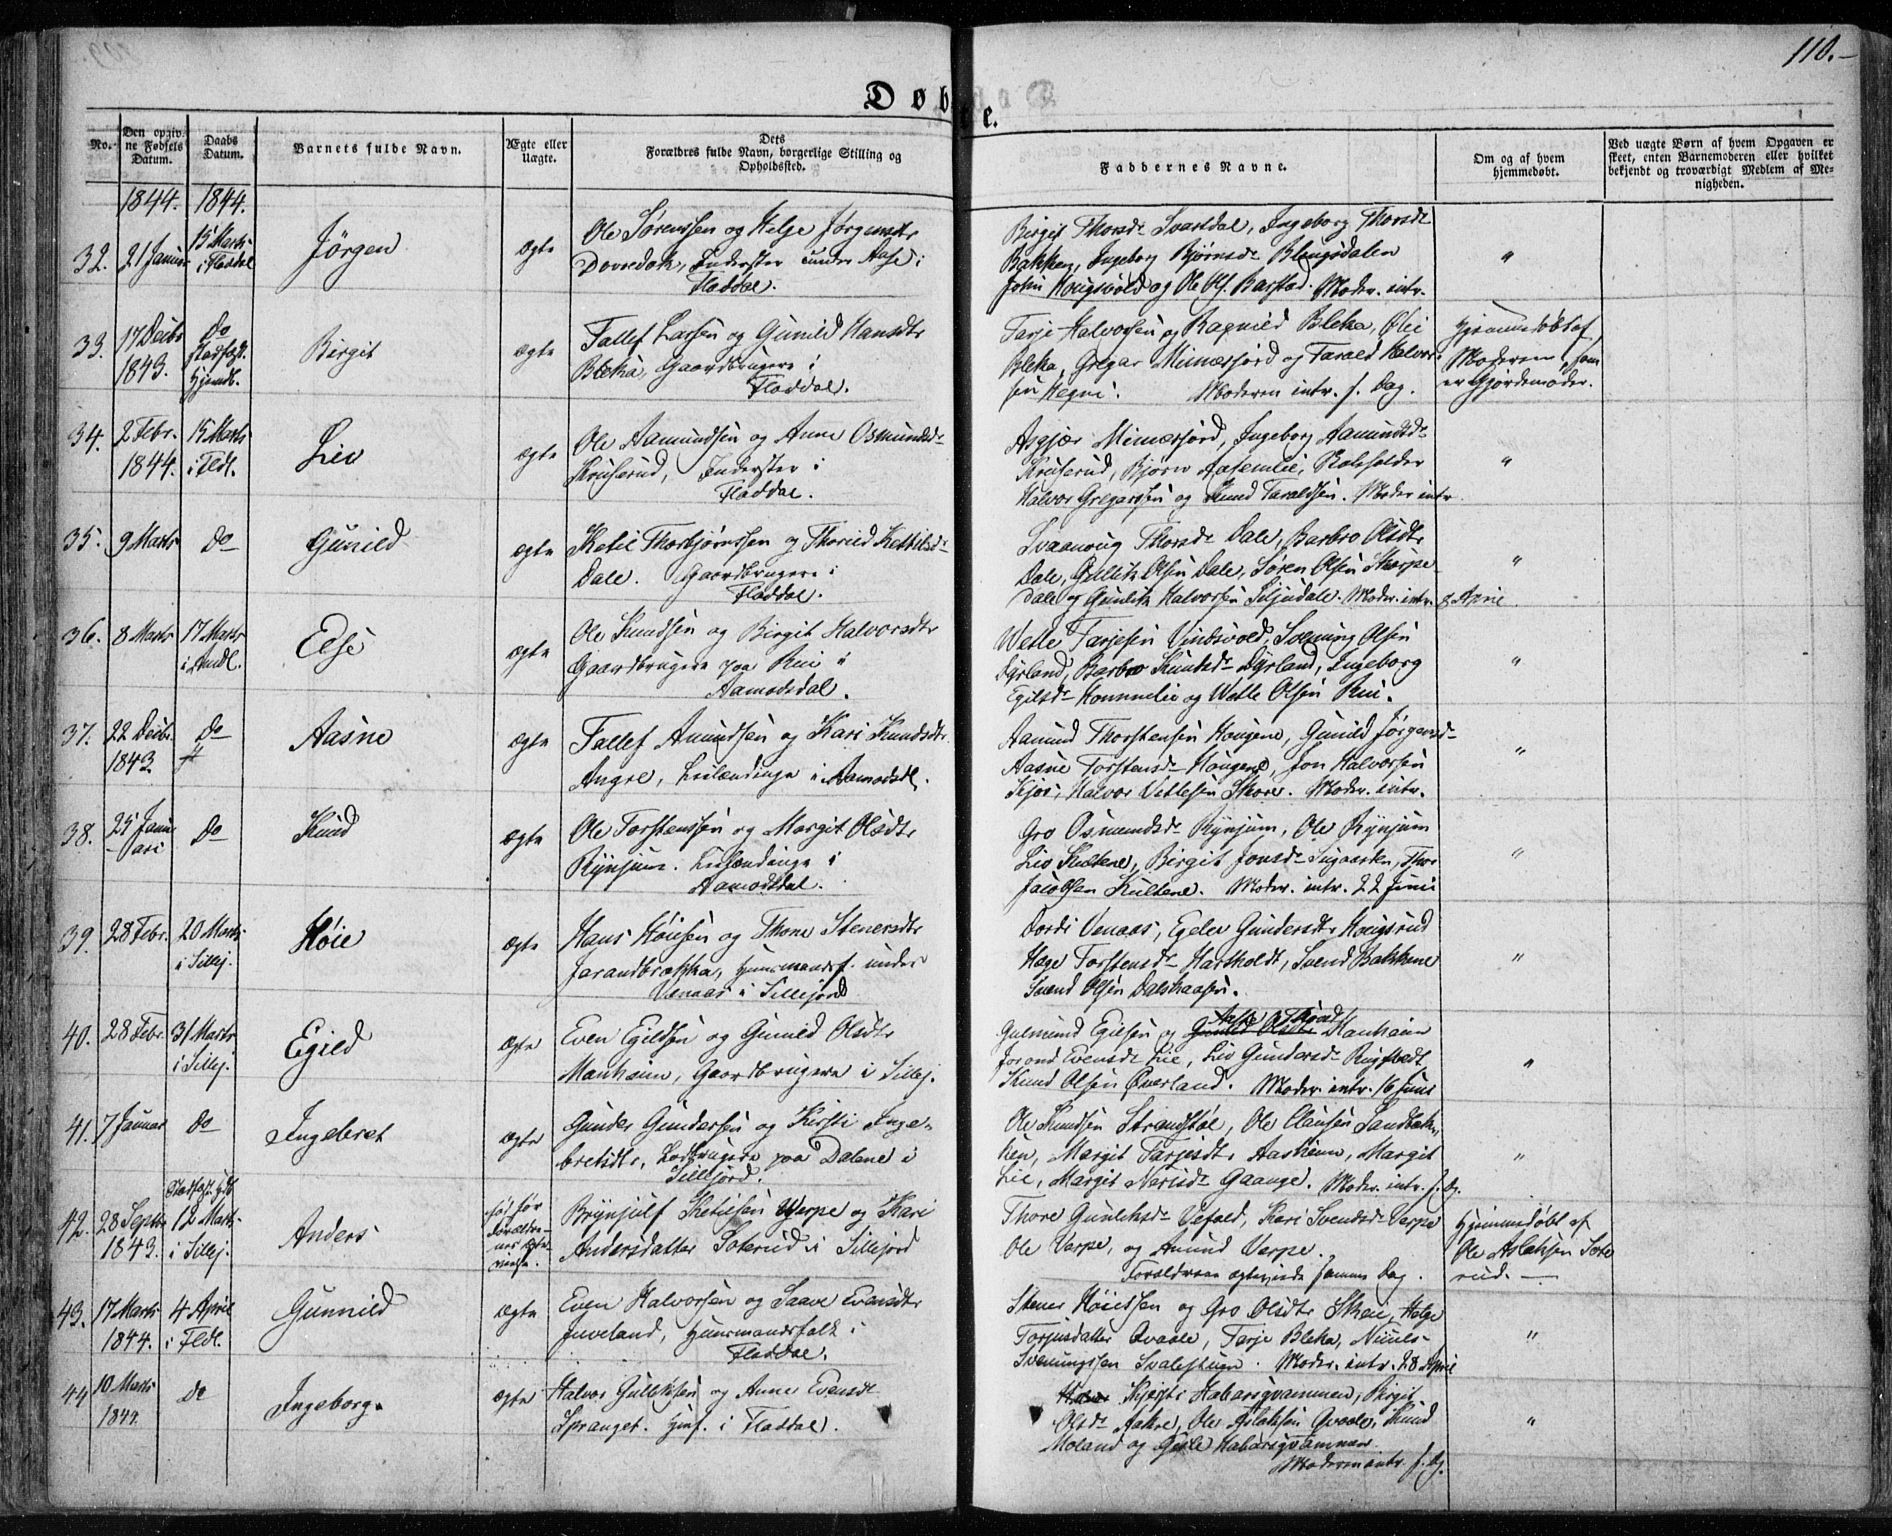 110.-
Døbte.
No.
Den opgivne Fødsels Datum.
Daabs Datum.
Barnets fulde Navn.
Ægte eller Uægte.
Dets Forældres fulde Navn, borgerlige Stilling og Opholdssted.
Faddernes Navne.
Om og af hvem hjemmedøbt.
Ved uægte Børn af hvem Opgaven er skeet, enten Barnemoderen eller hvilket bekjendt og troværdigt Medlem af Menigheden.
1844. 1844.
32. 21 Januar 15 Marts i Fladdal Jörgen ægte
Ole Sörenssen og Helje Jørgensdtr
Dovredok, Inderster under Aase i
Fladdal.
Birgit Thorsdr Svartdal, Ingeborg Thorsdr
Bakken, Ingeborg Bjørnsdr
John Hougsvold og Ole Ol. Barstad. Moder. intr.
"
33. 17 Decbr 1843. Do stadfæst. Hjemdb. Birgit ægte
Tallef Larsen og Gunild Hansdtr
Bleka, Gaardbrugere i
Fladdal.
Tarje Halvorsen og Ragnild Bleka, Olei
Bleka, Gregar Mimæsjord og Tarald Halvor-
sen Hegni. Moderen intr. s. Dag.
Hjemmedøbt af
Moderen, som
er Gjordemoder.
34. 2 Febr. 1844. 15 Marts i Fldl. Liv ægte
Ole Aamundsen og Anne Osmundsdr
Kruserud, Inderster i
Fladdal.
Asgjær Mimæsjord, Ingeborg Aamundsdr
Kruserud, Bjørn Aasemlie, Rolefolder
Halvor Gregarssen og Knud Taraldsen. Moder intr
"
35. 9 Marts Do Gunild ægte
Ketil Thorbjørnssen og Thorild Kettilsdr
Dale. Gaardbrugere i
Fladdal.
Svaanoug Thorsdr Dale, Barbro Olsdtr
Dale, Gullik Olsen Dale, Søren Olsen Skorpe
Dale og Gunlik Halvorsen Siljudale. Moder. intr. 8 April
"
36. 8 Marts 17 Marts i Amdl. Else ægte
Ole Knudsen og Birgit Halvorsdtr
Gaardbrugere paa Rui i
Aamodsdal.
Wetle Tarjesen Vindsvold, Solvnung Olsen
Dyrland, Barbro Knutsdr Dyrland, Ingeborg
Egilsdr Hommelie og Wetle Olsen Rui.
"
37. 22 Decbr. 1843. Do Aasne ægte
Tallef Amundsen og Kari Knudsdtr
Angre, Leilændinge i Aamodsdl.
Aamund Thorstensen Hougene, Gunild Jørgensdr
Aasne Torstensdr Hougene, Jon Halvorsen
Kjos, Halvor Vetlesen Skore. Moder. intr.
"
38. 25 Januari Do Knud ægte
Ole Torstenssen og Margit Olsdtr
Rynjum. Leilændinge i
Aamodsdal.
Gro Osmundsdr Rynjum, Ole Rynjum
Liv Kultene, Birgit Jonsdr Sugaarden, Thor
Jacobsen Kultene. Moder. intr. 22 Juni
"
39. 28 Febr. 20 Marts i Sillej. Høie ægte
Hans Høiesen og Thone Stenersdtr
Jarandbrækka, Huusmandsf. under
Vænaas i Sillejord
Dordi Venaas, Egelev Gundersdtr Hougsrud
Hæge Torstensdr Hartholdt, Svend Bakkene
Svend Olsen Dalskaasen.
"
40. 28 Febr. 31 Marts i Sillej. Egild ægte
Even Egildsen og Gunild Olsdtr
Manheim, Gaardbrugere i Sillej.
Gulmund Egilsen og Gunild Olsdtr Manheim
Jorond Evensdr Lie, Liv Gundersdr Rugstvedt
Knud Olsen Överland. Moder. intr. 16 Juni
"
41. 7 Januar Do Ingebret ægte
Gunder Gundersen og Kirsti Inge-
bretsdtr, Lodbrugere paa Dalene i
Sillejord.
Ole Knudsen Strandstøl, Ole Clausen Sandbæk-
kien, Margit Tarjesdtr Aasheim, Margit
Lie, Margit Nerisdr Gaange. Moder. intr. s. Dg.
"
42. 28 Septbr 1843. Stadfæst. Hjdb 12 Marts i Sillej. Anders
fød før Forældrenes Ægtevielse.
Brynjulf Ketilsen Verpe og Kari
Andersdatter Soterud i Sillejord
Thore Gunleksdr Vefald, Kari Svendsdr Verpe
Ole Verpe, og Amund Verpe.
Forældrene ægteviede samme Dag.
Hjemmedøbt af
Ole Aslaksen Sote
rud. —
43. 17 Marts 1844. 4 April i Fldl. Gunnild ægte
Even Halvorsen og Saave Evensdtr
Juveland, Huusmandsfolk i
Fladdal.
Stener Høiessen og Gro Olsdtr Skei, Helge
Torjusdatter Qvaale, Tarje Bleka, Niuls
Svenungssen Svalestugu. Moder. intr. 28 April
"
44 10 Marts 1844. Do Ingeborg. ægte
Halvor Gulleksen og Anne Evensdr
Spranget. Hmf. i Fladdal.
Kjersti Habarsqvammen, Birgit
Olsdr Aakre, Ole Aslaksen Qvaale, Knud
Moland og Gisle Habarsqvammen.
Moderen intr. s. Dg.
"